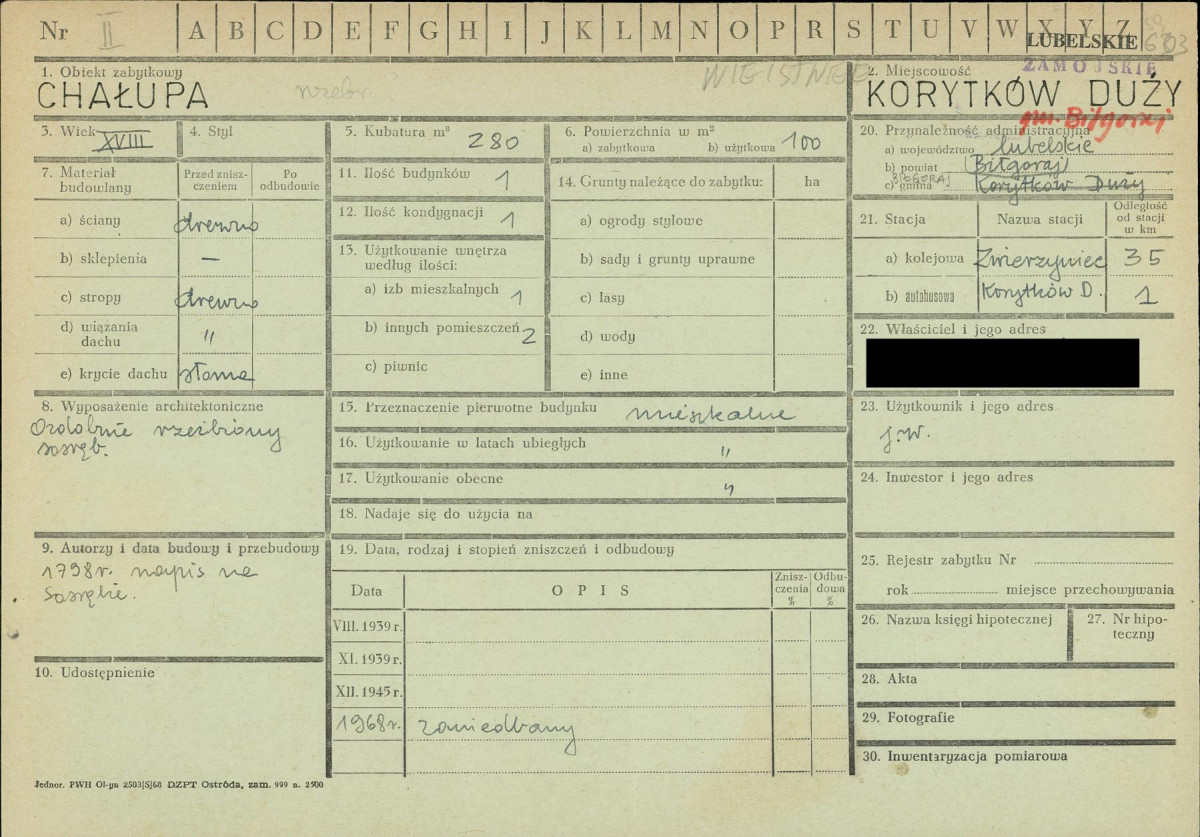 Nr II A B C D E F G H I J K L M N O P R S T U V W X Y Z
LUBELSKIE 603
ZAMOJSKIE
1. Obiekt zabytkowy
CHAŁUPA
2. Miejscowość
KORYTKÓW DUŻY
gm. Biłgoraj
3. Wiek XVIII
4. Styl
5. Kubatura m³ 280
6. Powierzchnia w m²
a) zabytkowa b) użytkowa 100
7. Materiał budowlany
Przed zniszczeniem
Po odbudowie
a) ściany drewno
b) sklepienia —
c) stropy drewno
d) wiązania dachu "
e) krycie dachu słoma
8. Wyposażenie architektoniczne
Ozdobnie rzeźbiony
sosręb.
9. Autorzy i data budowy i przebudowy
1798r. napis na
sosrębie.
10. Udostępnienie
11. Ilość budynków 1
12. Ilość kondygnacji 1
13. Użytkowanie wnętrza
według ilości:
a) izb mieszkalnych 1
b) innych pomieszczeń 2
c) piwnic
14. Grunty należące do zabytku: ha
a) ogrody stylowe
b) sady i grunty uprawne
c) lasy
d) wody
e) inne
15. Przeznaczenie pierwotne budynku mieszkalne
16. Użytkowanie w latach ubiegłych "
17. Użytkowanie obecne "
18. Nadaje się do użycia na
19. Data, rodzaj i stopień zniszczeń i odbudowy
Data
OPIS
Zniszczenia %
Odbudowa %
VIII. 1939 r.
XI. 1939 r.
XII. 1945 r.
1968r. zaniedbany
20. Przynależność administracyjna
a) województwo lubelskie
b) powiat (Biłgoraj)
BIŁGORAJ
c) gmina Korytków Duży
21. Stacja
Nazwa stacji
Odległość od stacji w km
a) kolejowa Zwierzyniec 35
b) autobusowa Korytków D. 1
22. Właściciel i jego adres
23. Użytkownik i jego adres
j.w.
24. Inwestor i jego adres
25. Rejestr zabytku Nr
rok miejsce przechowywania
26. Nazwa księgi hipotecznej
27. Nr hipoteczny
28. Akta
29. Fotografie
30. Inwentaryzacja pomiarowa
Jednor. PWH Ol-yn 2503|S|68 DZPT Ostróda, zam. 999 n. 2500